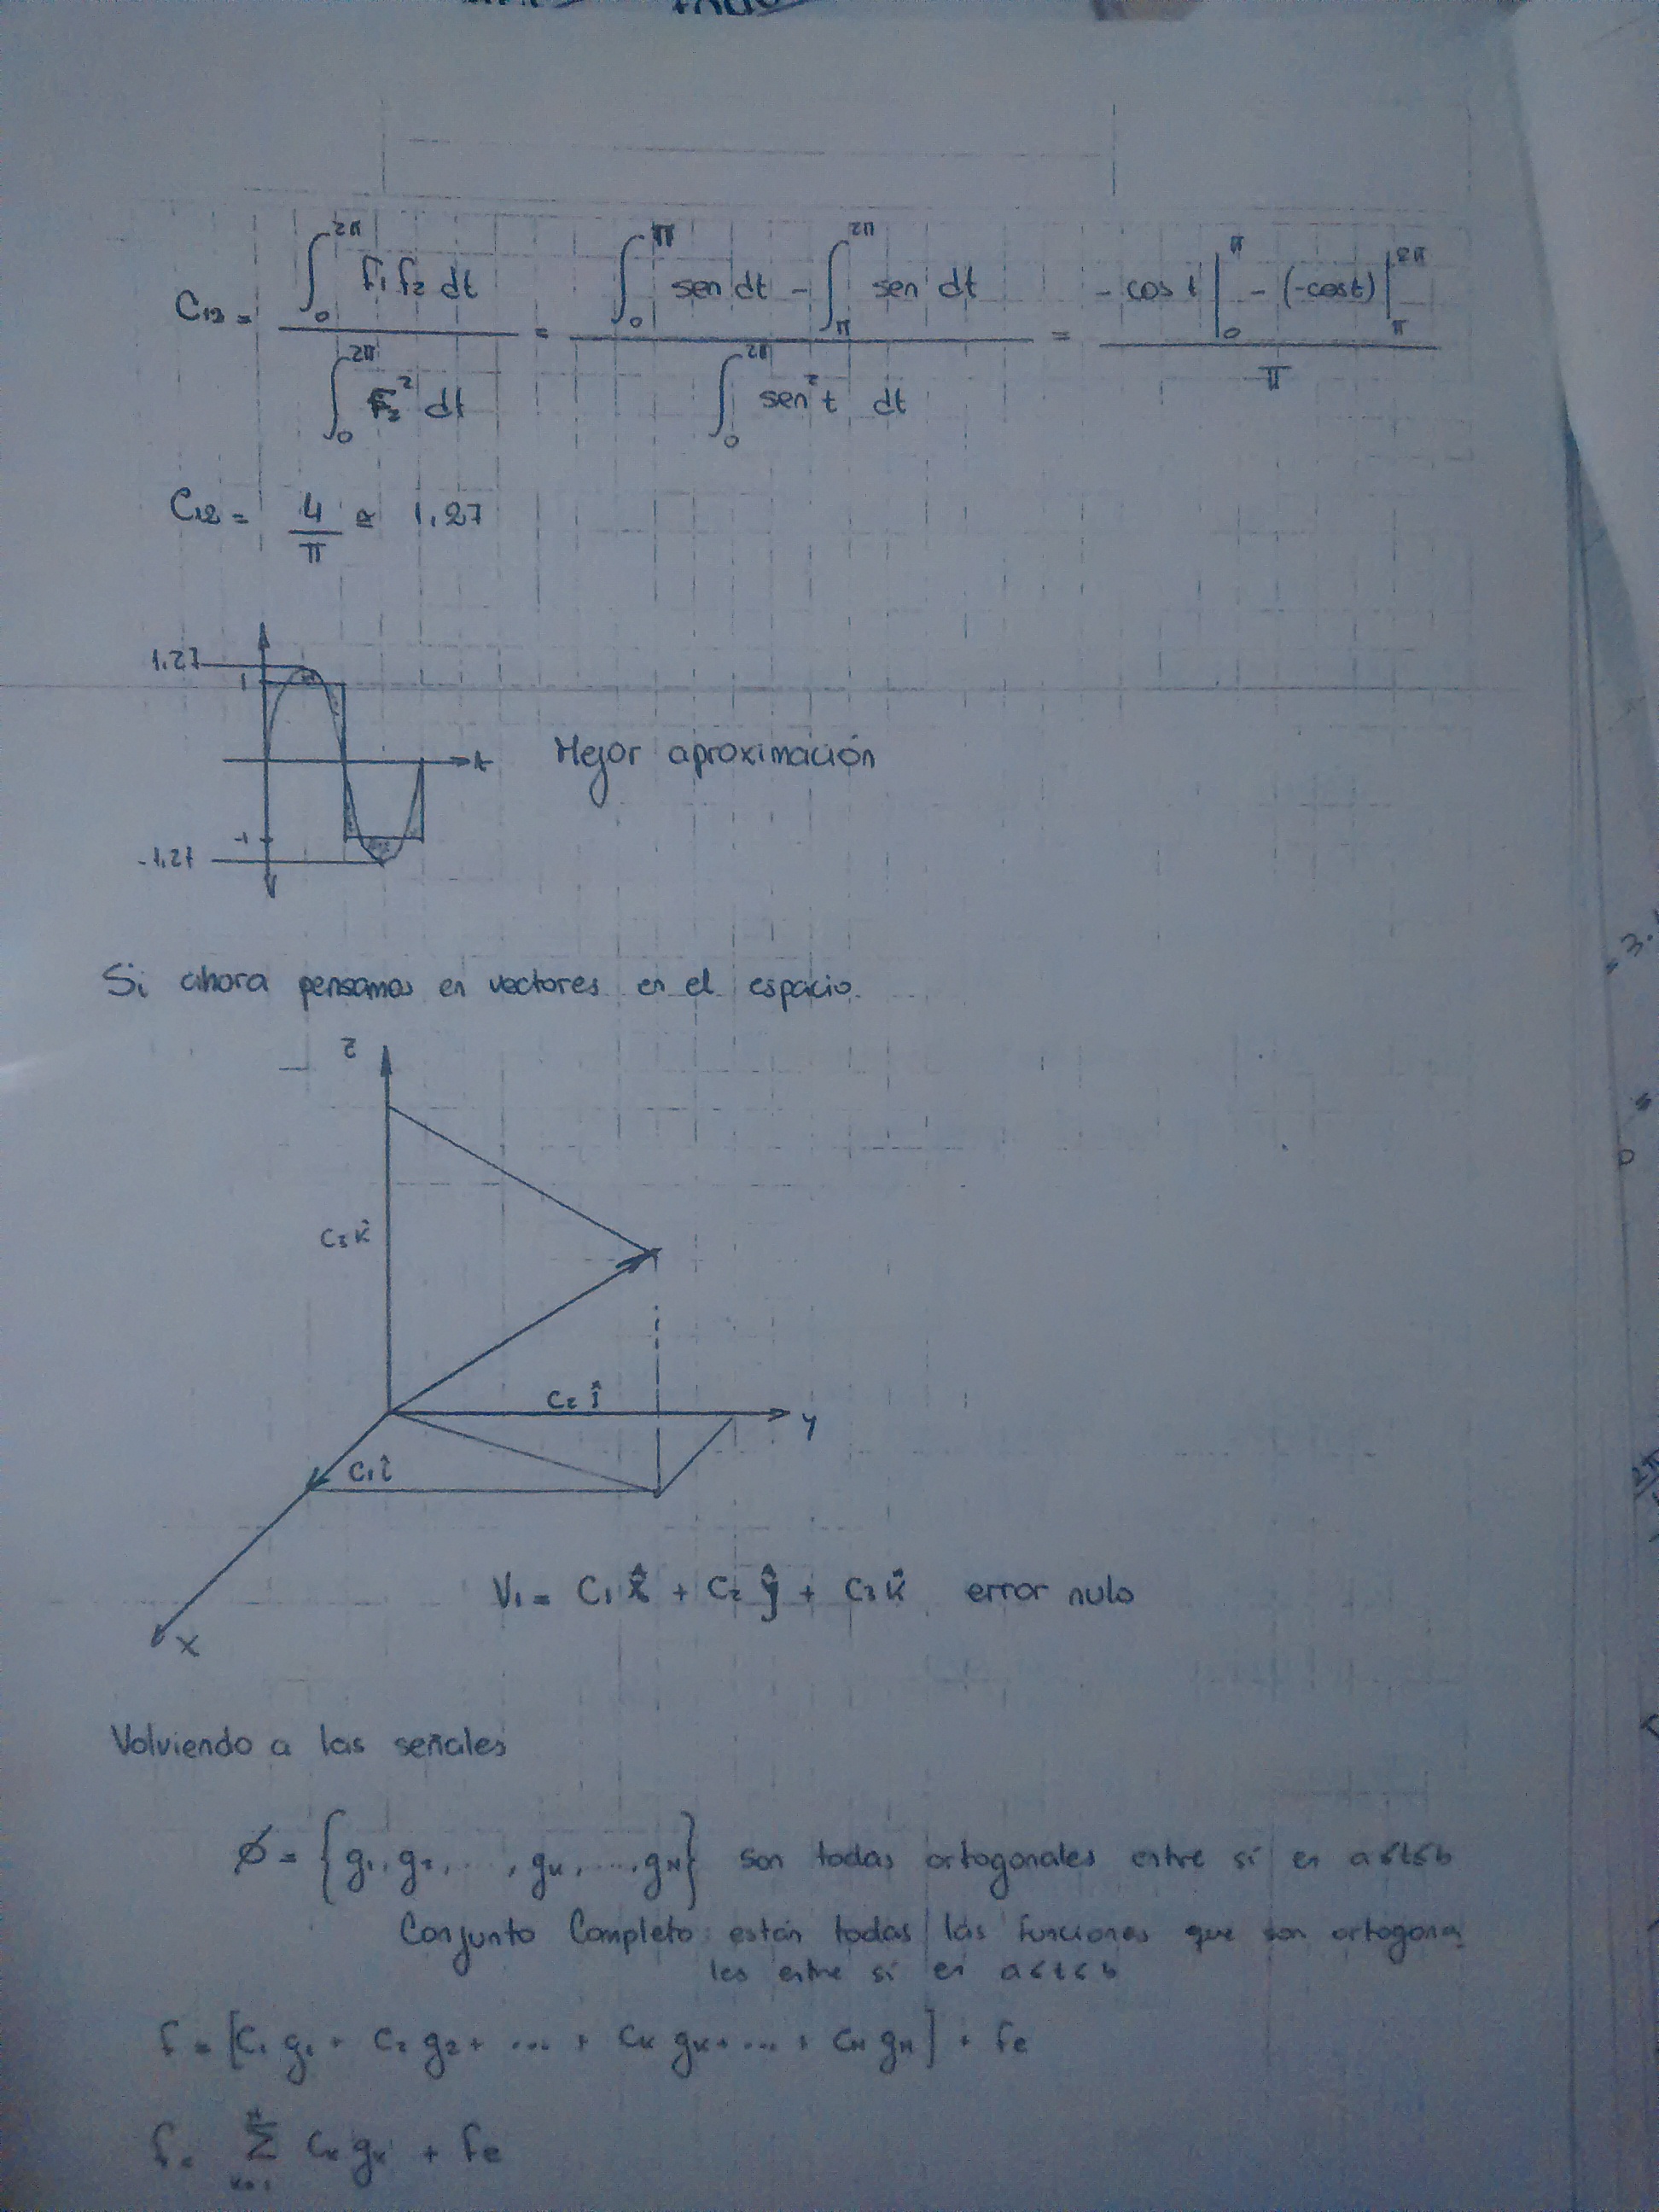 C₁₂ = ∫₀^2π f₁ f₂ dt / ∫₀^2π f₂² dt = (∫₀^π sen dt - ∫_π^2π sen dt) / ∫₀^2π sen² t dt = (- cos t |₀^π - (-cos t) |_π^2π) / π
C₁₂ = 4/π ≅ 1,27
1,27
1
t
Mejor aproximación
-1
-1,27
Si ahora pensamos en vectores en el espacio.
z
C₃ k̂
C₂ ĵ
y
C₁ î
V₁ = C₁ x̂ + C₂ ŷ + C₃ k̂ error nulo
x
Volviendo a las señales
Ø = {g₁, g₂, ..., gₖ, ..., g_N} son todas ortogonales entre sí en a≤t≤b
Conjunto Completo: están todas las funciones que son ortogona
les entre sí en a≤t≤b
f = [C₁ g₁ + C₂ g₂ + ... + Cₖ gₖ + ... + C_N g_N] + fe
f = Σ_{k=1}^N Cₖ gₖ + fe